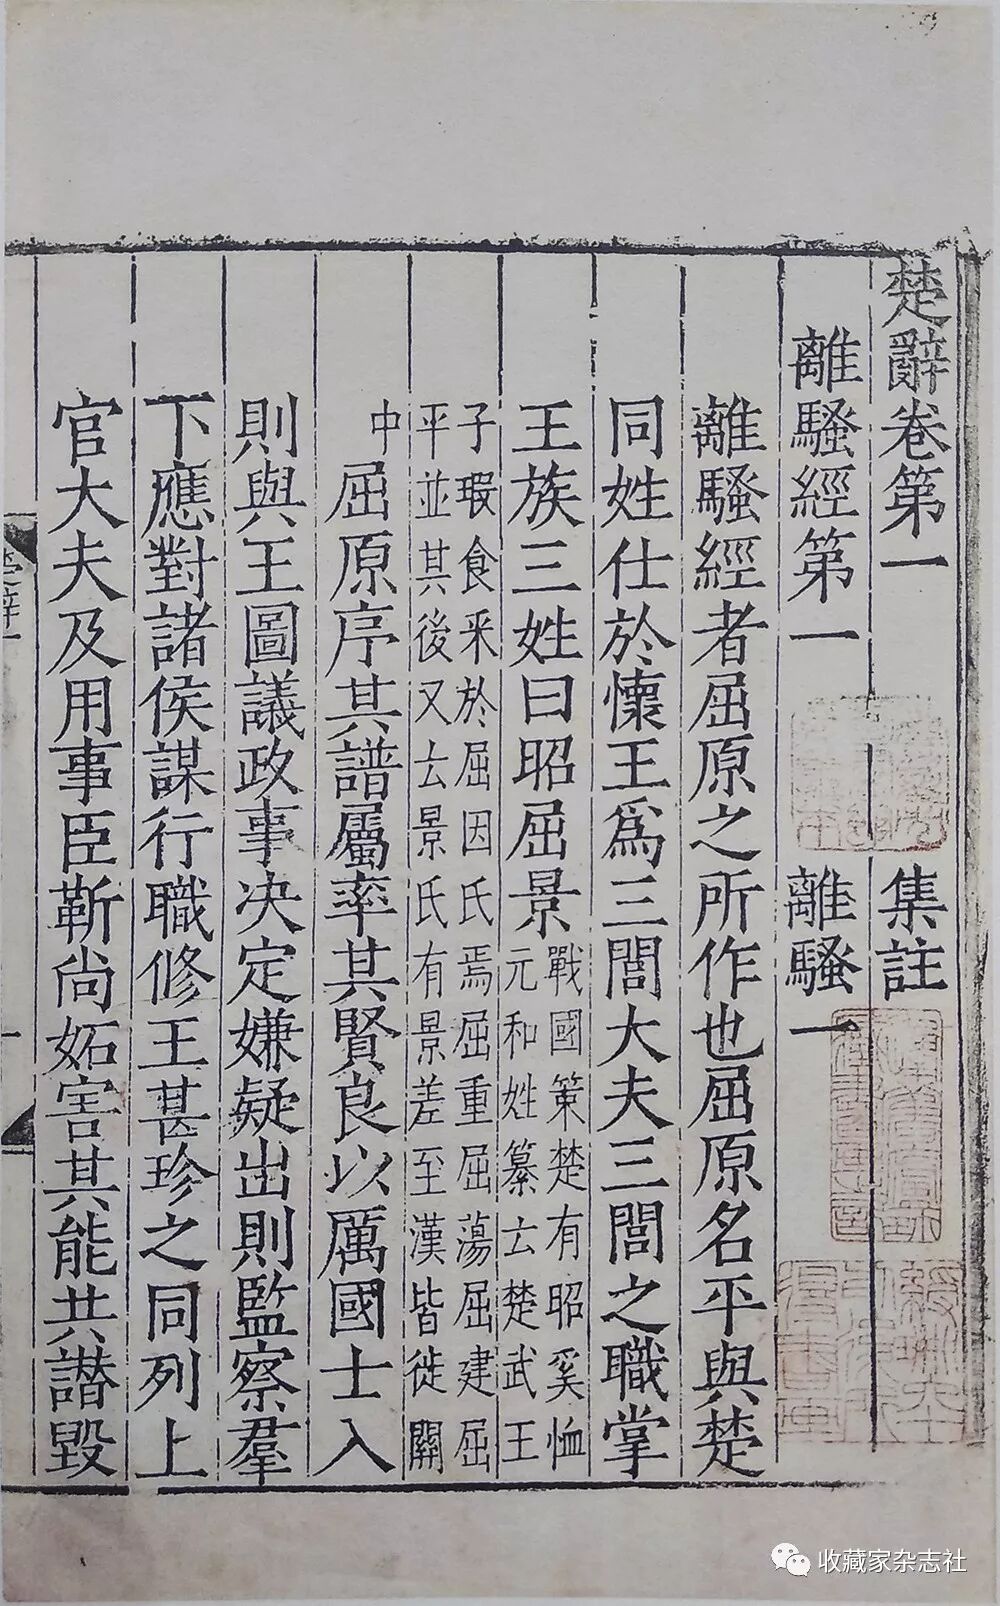 楚辭卷第一 集註
離騷經第一 離騷一
離騷經者屈原之所作也屈原名平與楚
同姓仕於懷王爲三閭大夫三閭之職掌
王族三姓曰昭屈景戰國策楚有昭奚恤
元和姓纂云楚武王
子瑕食采於屈因氏焉屈重屈蕩屈建屈
平並其後又云景氏有景差至漢皆徙關
中屈原序其譜屬率其賢良以厲國士入
則與王圖議政事決定嫌疑出則監察羣
下應對諸侯謀行職修王甚珍之同列上
官大夫及用事臣靳尚妬害其能共譖毀
楚辭一
收藏家杂志社